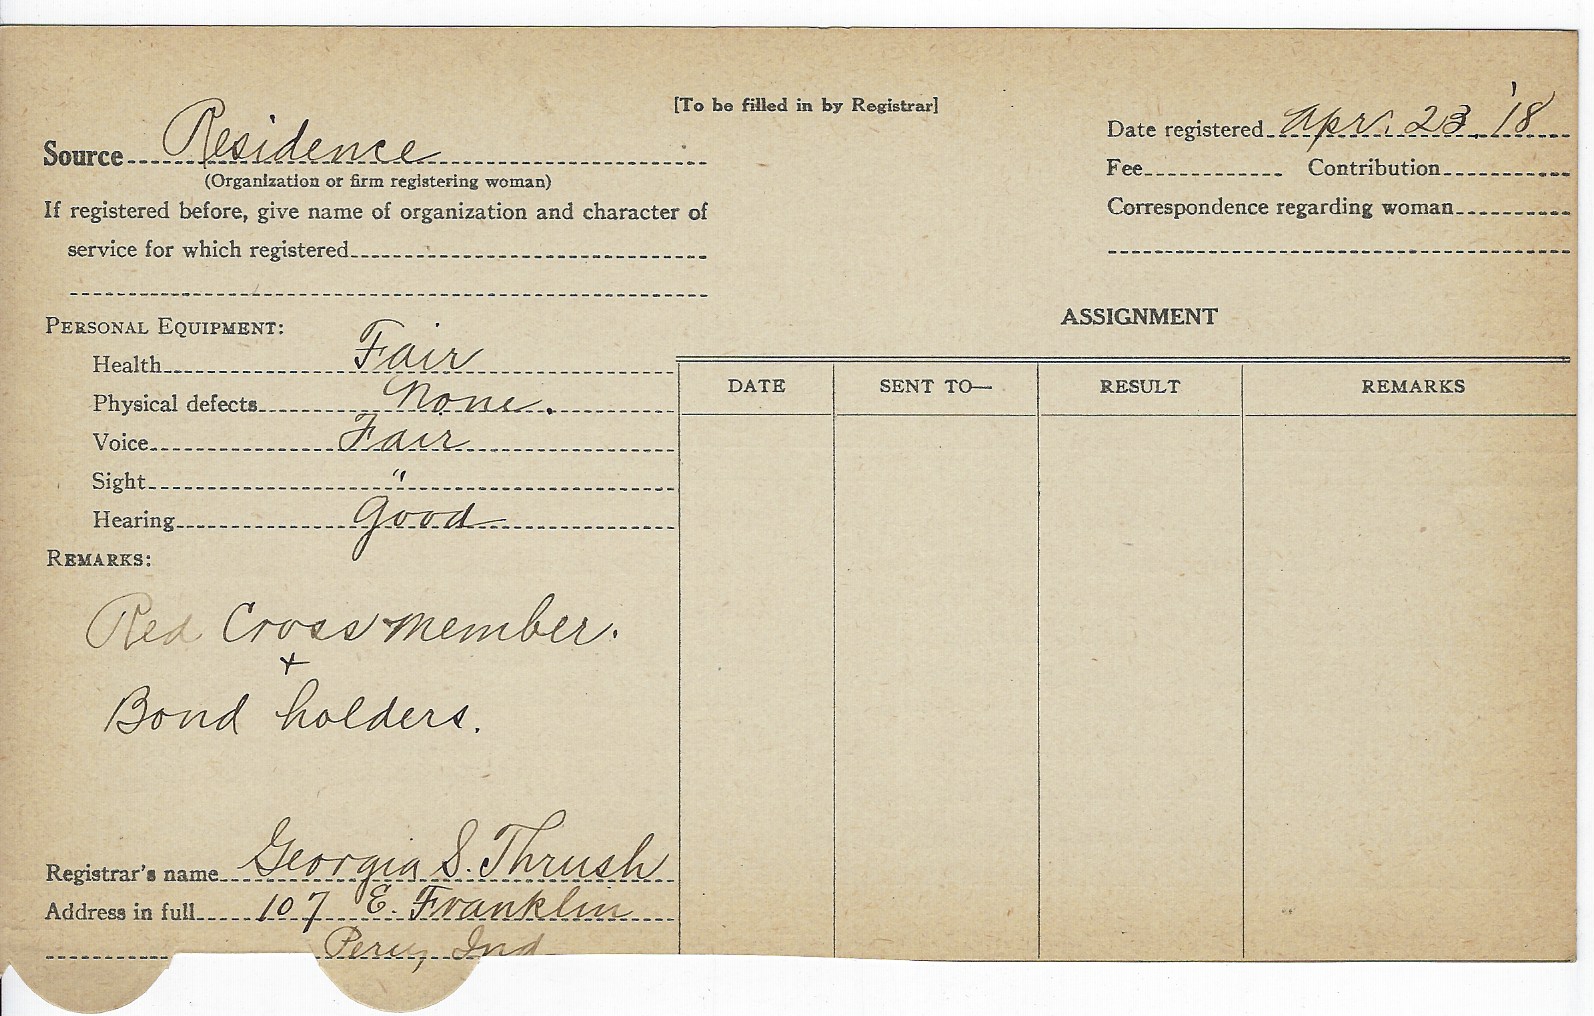 [To be filled in by Registrar]
Source Residence
(Organization or firm registering woman)
If registered before, give name of organization and character of
service for which registered
Date registered Apr. 23 '18
Fee Contribution
Correspondence regarding woman
PERSONAL EQUIPMENT:
Health Fair
Physical defects None.
Voice Fair
Sight "
Hearing Good
REMARKS:
Red Cross member.
+
Bond holders.
Registrar's name Georgia S. Thrush
Address in full 107 E. Franklin
Peru, Ind
ASSIGNMENT
DATE SENT TO— RESULT REMARKS